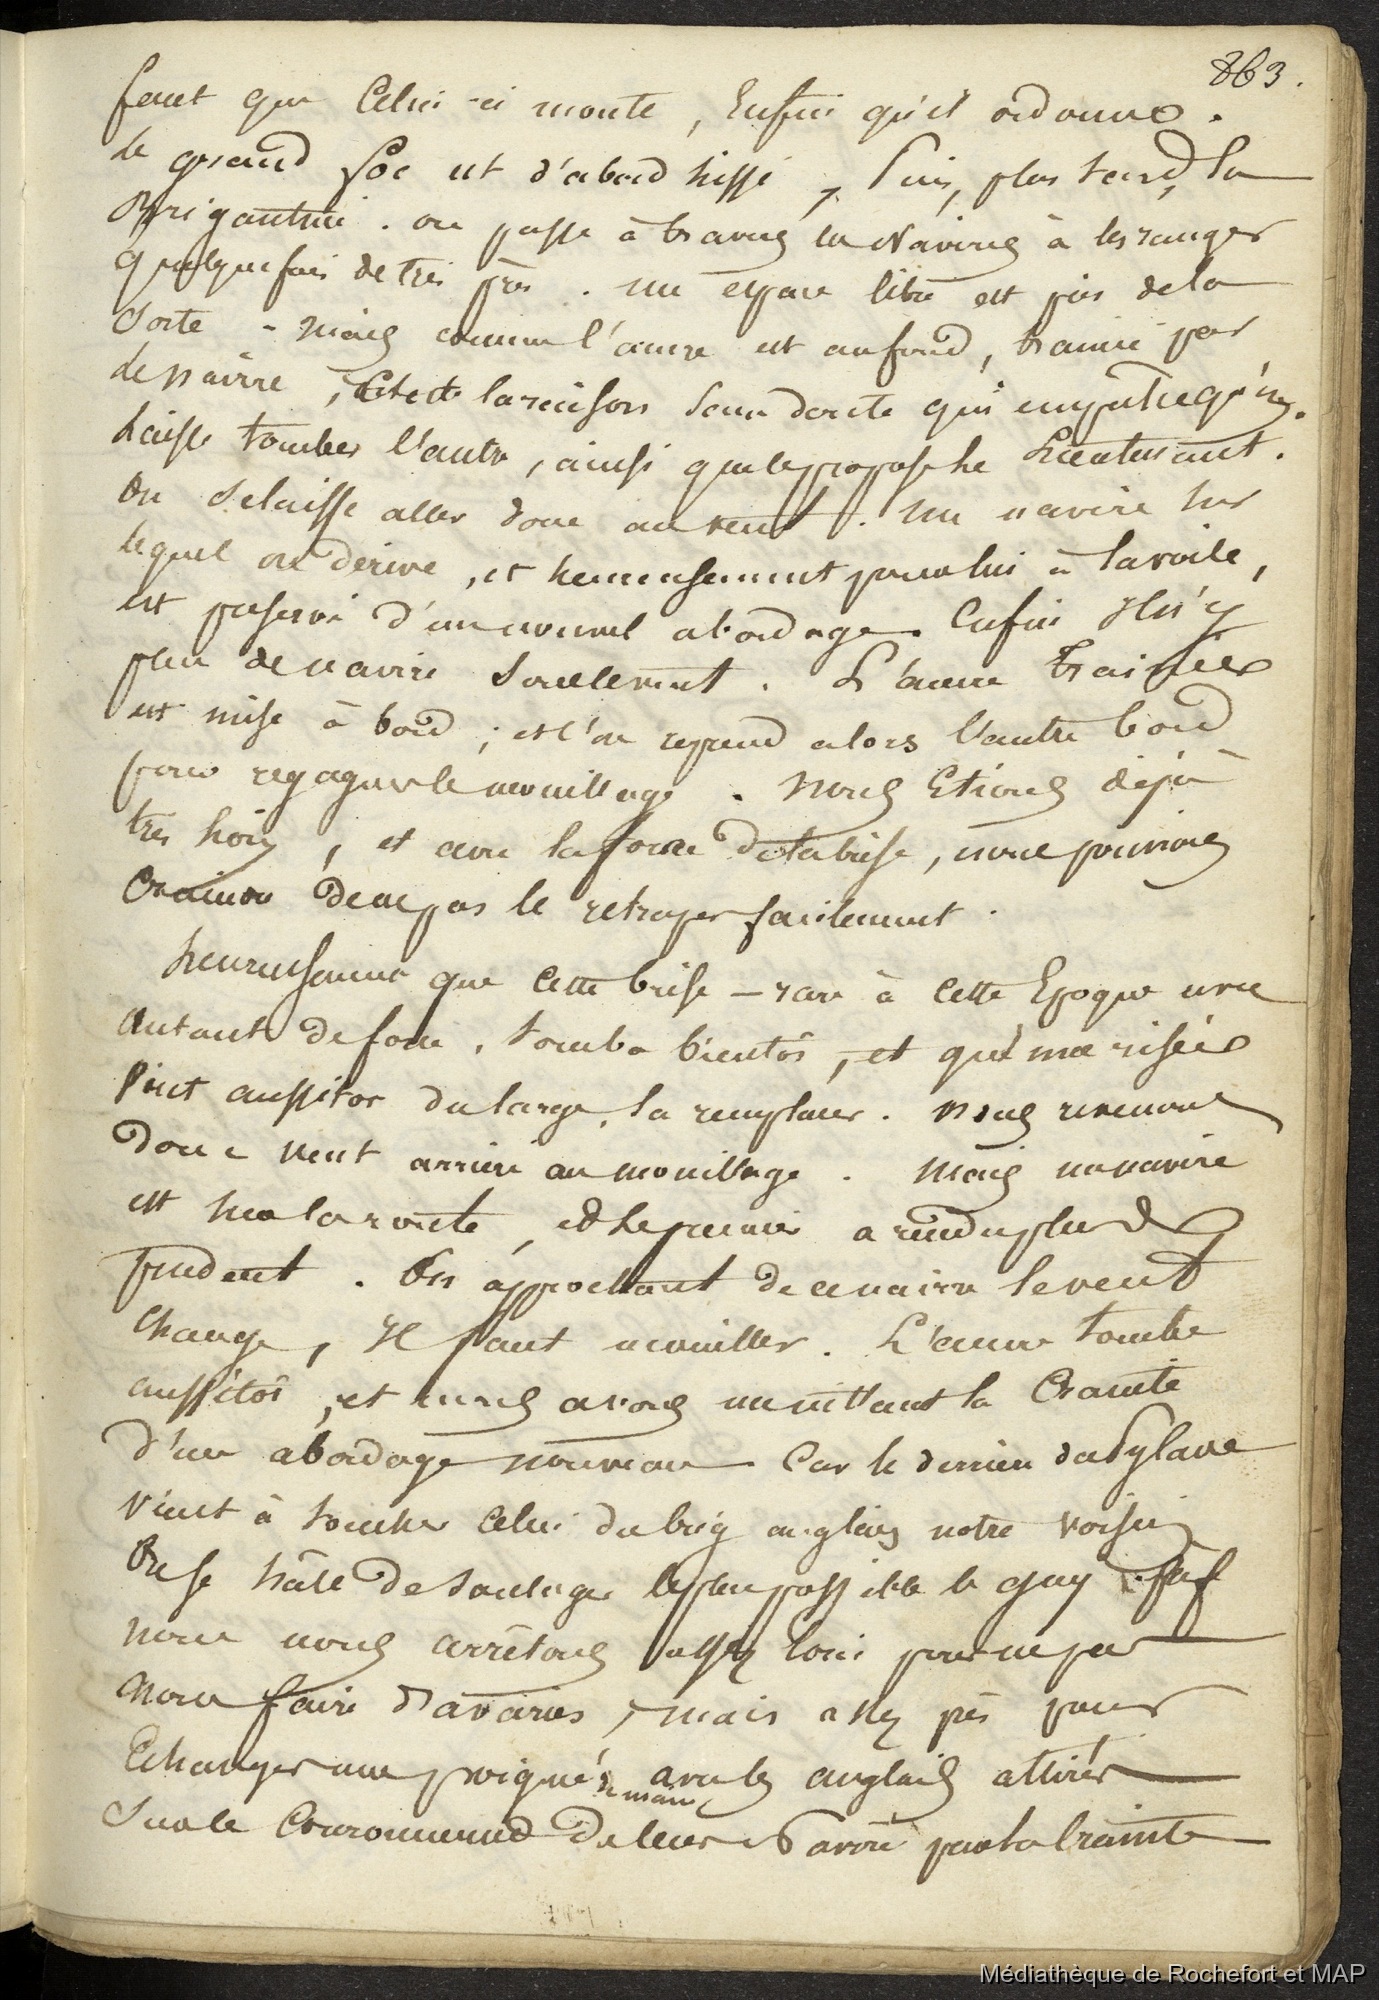 863.
faut que celui-ci monte, Enfin qu'il ordonne.
le grand foc est d'abord hissé, Puis, plus tard, la
Brigantine. on passe à travers les Navires à les ranger
quelquefois de très près. un espace libre est pris de la
sorte - Mais comme l'ancre est au fond, trainée par
le navire, C'est la raison sans doute qui empêche qu'on
laisse tomber l'autre, ainsi que le propose le Lieutenant.
On se laisse aller donc au vent. un navire sur
lequel on dérive, et heureusement pour lui à la voile,
est préservé d'un nouvel abordage. Enfin Il n'y
plus de navire sous le vent. L'ancre trainée
est mise à bord ; et l'on reprend alors l'autre bord
pour regagner le mouillage. Nous Etions déjà
très loin, et avec la force de la brise, nous pouvions
Craindre de ne pas le rattraper facilement.
heureusement que cette brise - rare à cette Epoque avec
autant de force, tomba bientôt, et qu'une risée
vint aussitôt du large, la remplacer. Nous revenons
donc vent arrière au mouillage. Mais un navire
est sur la route, et le premier a rendu plus
prudent. En approchant de ce navire le vent
change, Il faut mouiller. L'ancre tombe
aussitôt, et nous avons un instant la Crainte
d'un abordage nouveau Car le derrière du Pylade
vient à toucher celui du brig anglais notre voisin
On se hâte de soulager le plus possible le guy
nous nous arrêtons assez loin pour ne pas
nous faire d'avaries, mais assez près pour
Echanger une poignée de main avec les anglais attirés
Sur le Couronnement de leur Navire par la Crainte